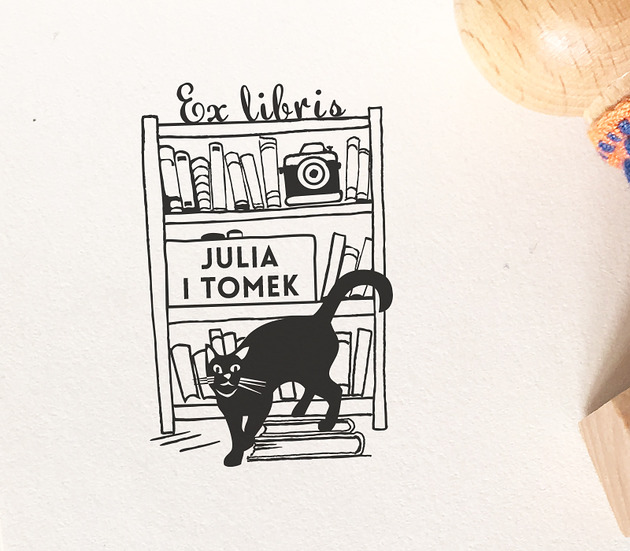 Ex libris
JULIA
I TOMEK